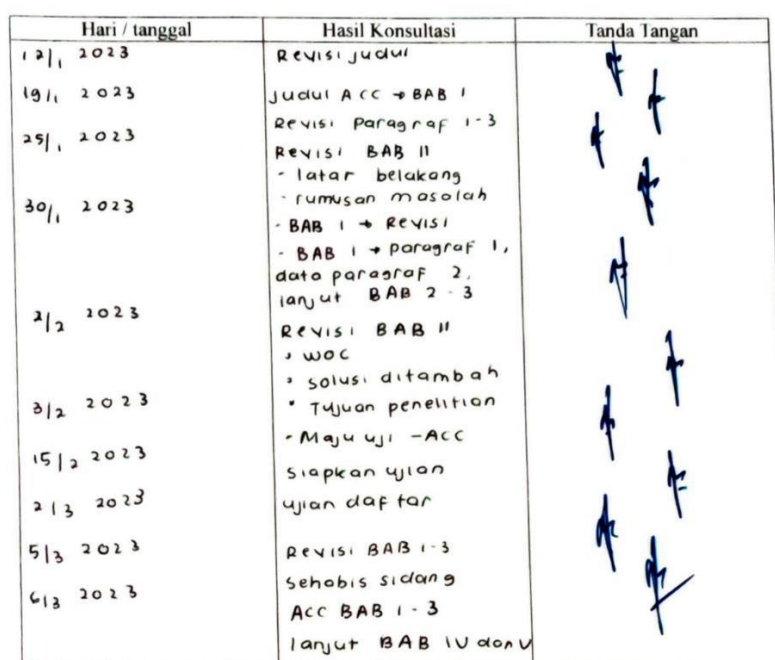 Hari / tanggal Hasil Konsultasi Tanda Tangan
12/1 2023 Revisi judul
19/1 2023 judul ACC → BAB 1
Revisi Paragraf 1-3
25/1 2023
Revisi BAB II
- latar belakang
- rumusan masalah
30/1 2023
- BAB 1 → Revisi
- BAB 1 → paragraf 1,
data paragraf 2,
lanjut BAB 2 - 3
2/2 2023
Revisi BAB II
• WOC
• solusi ditambah
3/2 2023 • Tujuan penelitian
- Maju uji - ACC
15/2 2023
siapkan ujian
2/3 2023 ujian daftar
5/3 2023 Revisi BAB 1-3
sehabis sidang
6/3 2023
ACC BAB 1 - 3
lanjut BAB IV dan V